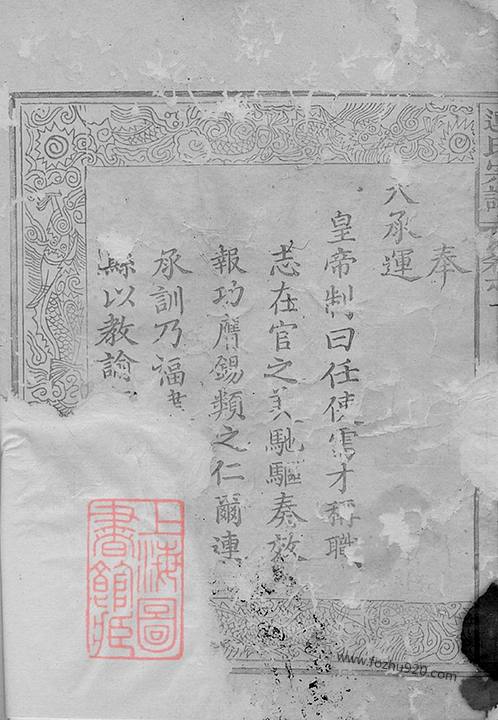 奉
天承運
皇帝制曰任使需才稱職
志在官之美馳驅奏效
報功膺錫類之仁爾連
承訓乃福
縣以教諭
氏宗譜
上海圖
書館藏
www.fozhu920.com